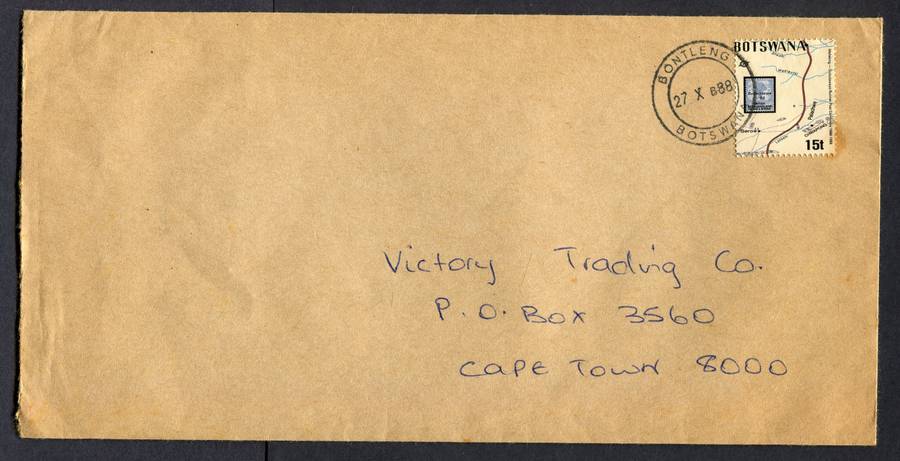 BOTSWANA
BONTLENG
27 X 88
BOTSWANA
15t
Victory Trading Co.
P.O. Box 3560
CAPE TOWN 8000